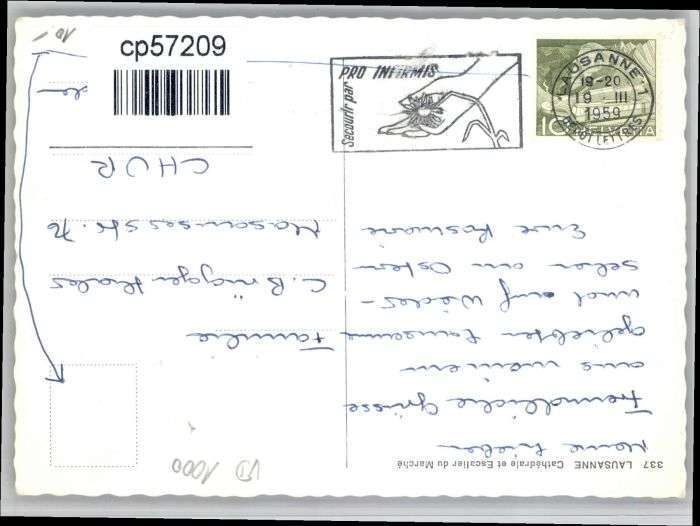 cp57209
PRO INFIRMIS
Secourir par
LAUSANNE 1
19-20
19 III
1959
HELVETIA
10
337 LAUSANNE Cathédrale et Escalier du Marché
Meine Lieben
Freundliche Grüsse
aus meinem
geliebten Lausanne
und auf Wieder-
sehen an Ostern
Eure Rosmarie
Familie
C. Brügger
Masanserstr. 76
CHUR
VD 1000